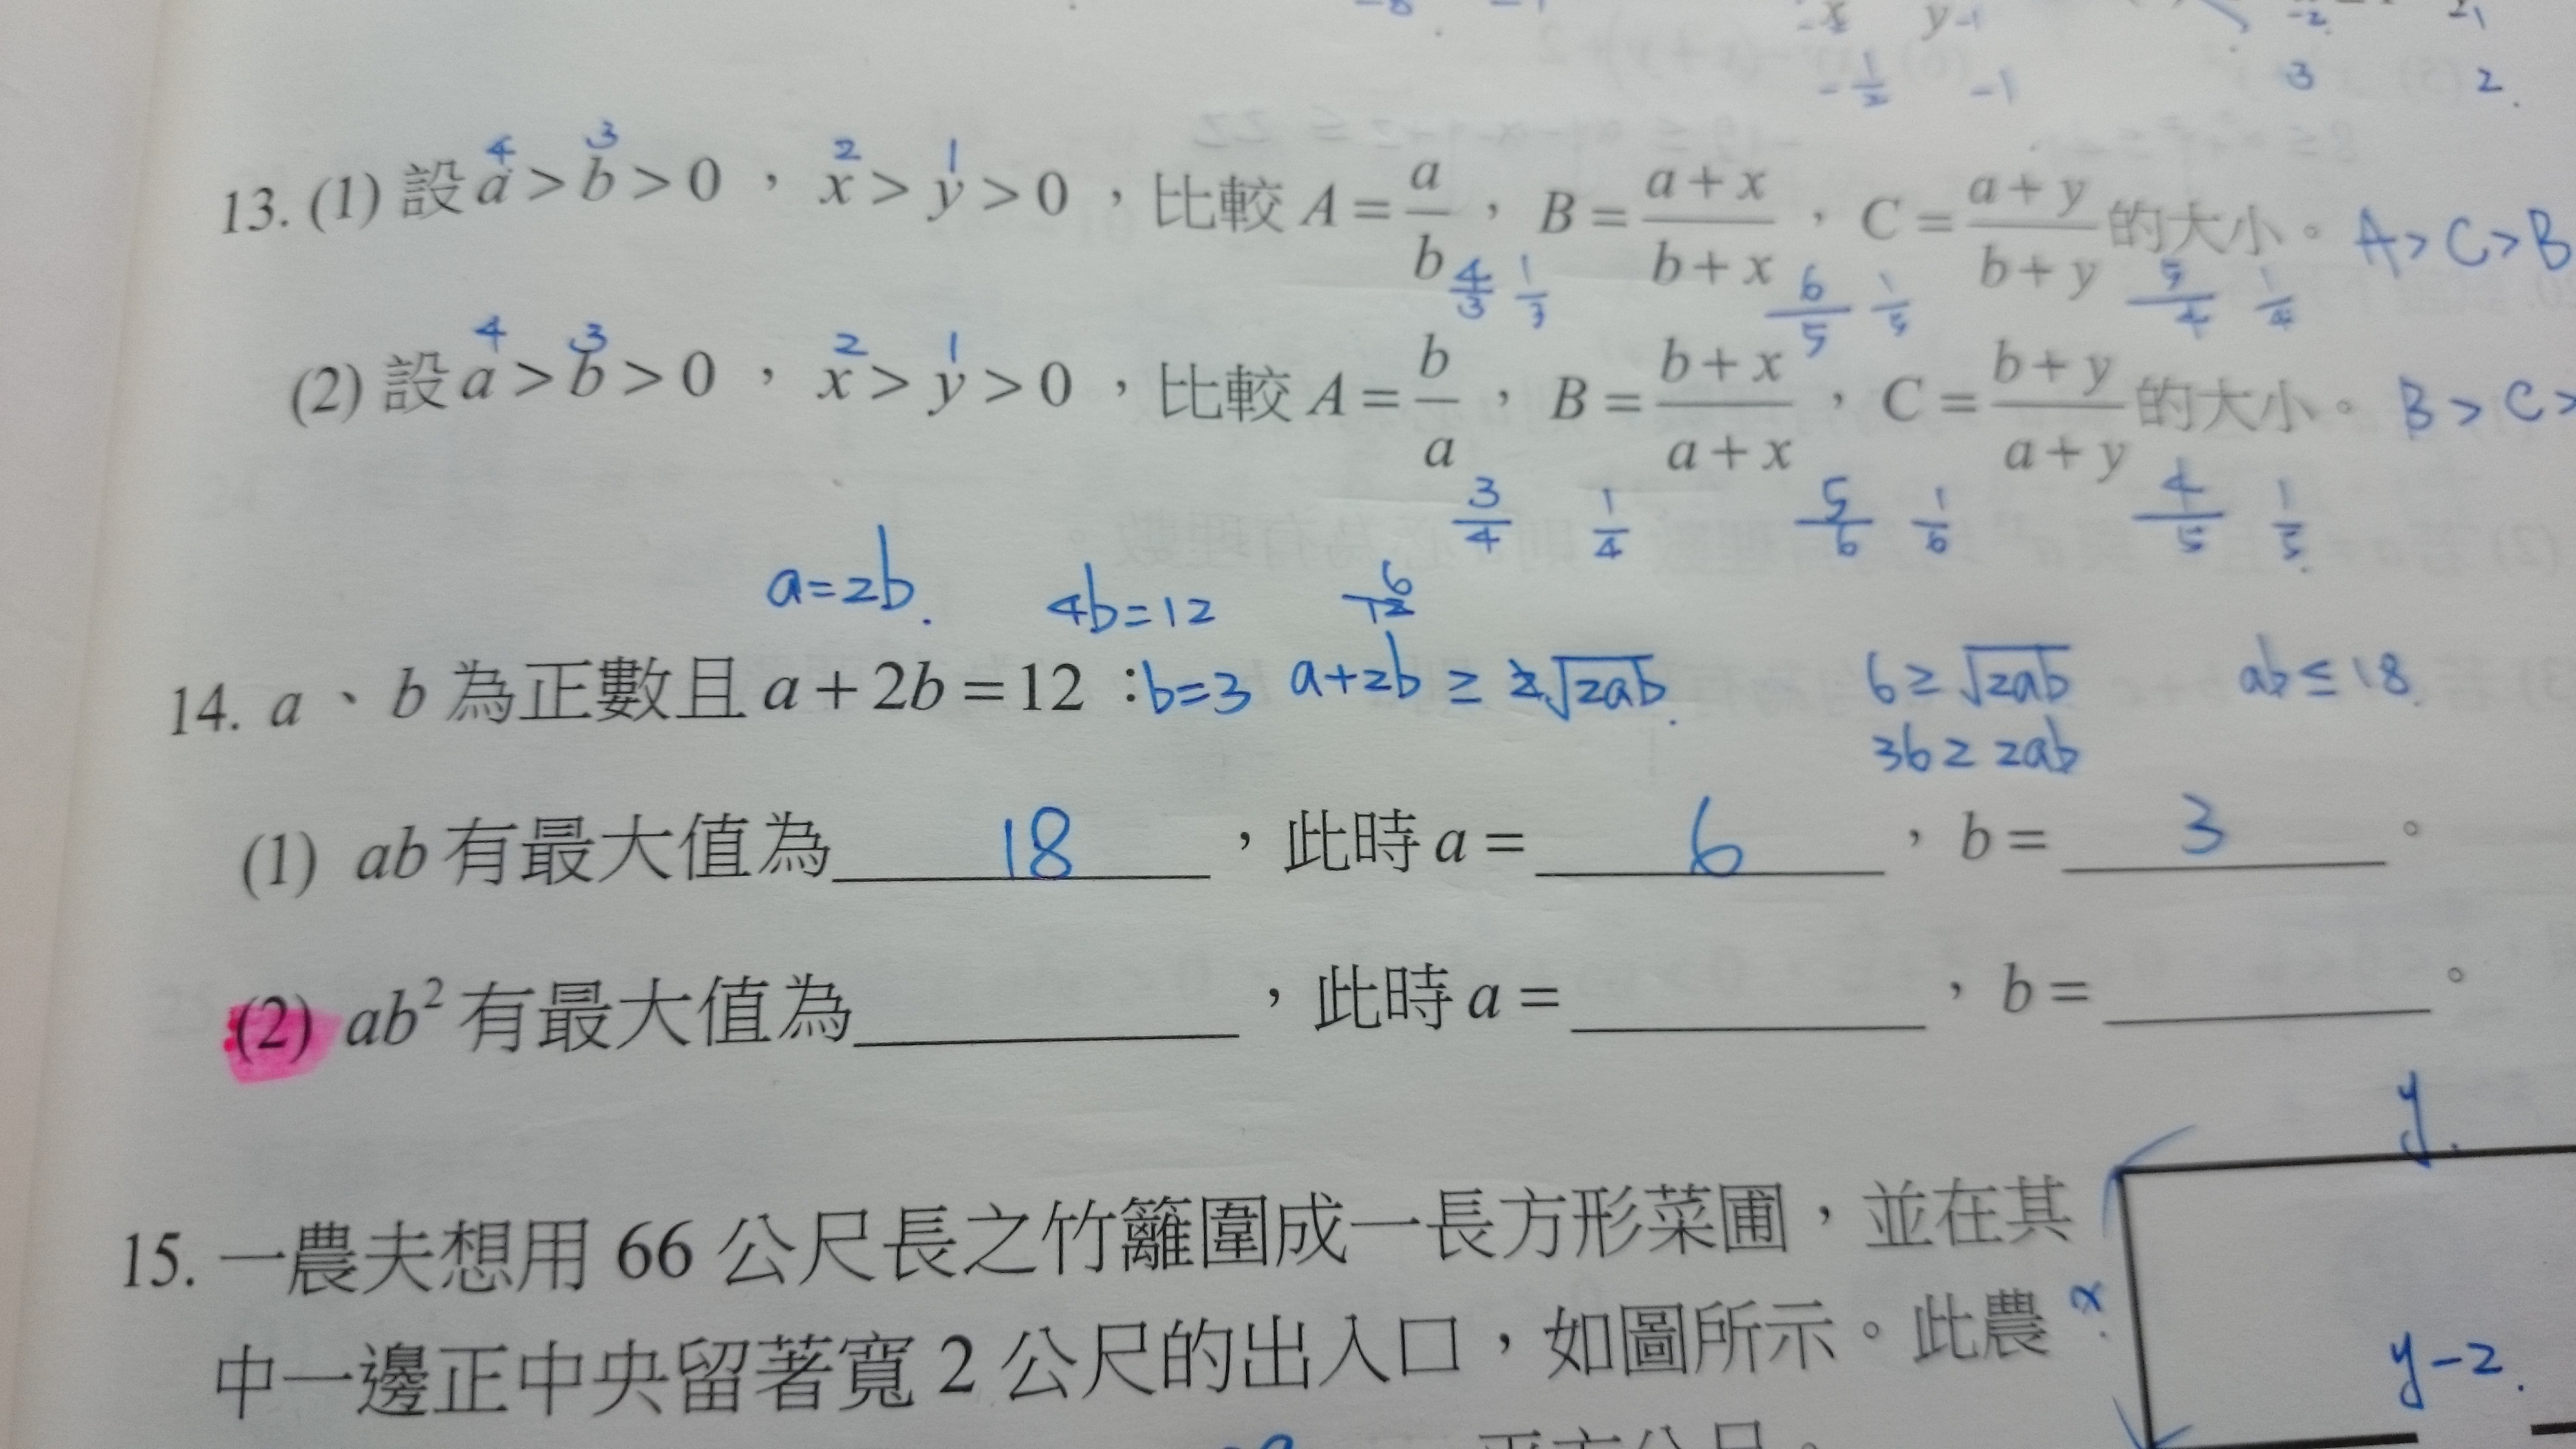 -8 -1 -x y-1 -2 2,
-1/2 -1 3 2.
4 3 2 1
13. (1) 設 a > b > 0 ，x > y > 0 ，比較 A = a/b ，B = (a+x)/(b+x) ，C = (a+y)/(b+y) 的大小。 A > C > B
4/3 1/3 6/5 1/5 5/4 1/4
4 3 2 1
(2) 設 a > b > 0 ，x > y > 0 ，比較 A = b/a ，B = (b+x)/(a+x) ，C = (b+y)/(a+y) 的大小。 B > C >
3/4 1/4 5/6 1/6 4/5 1/5
a=2b. 4b=12 6 12
14. a 、 b 為正數且 a + 2b = 12 ： b=3 a+2b ≥ 2√2ab. 6 ≥ √2ab ab ≤ 18
36 ≥ 2ab
(1) ab 有最大值為 18 ，此時 a = 6 ， b = 3 。
(2) ab² 有最大值為________，此時 a = ________， b = ________。
y.
15. 一農夫想用 66 公尺長之竹籬圍成一長方形菜圃，並在其
中一邊正中央留著寬 2 公尺的出入口，如圖所示。此農
x
y-2.
平方公尺。